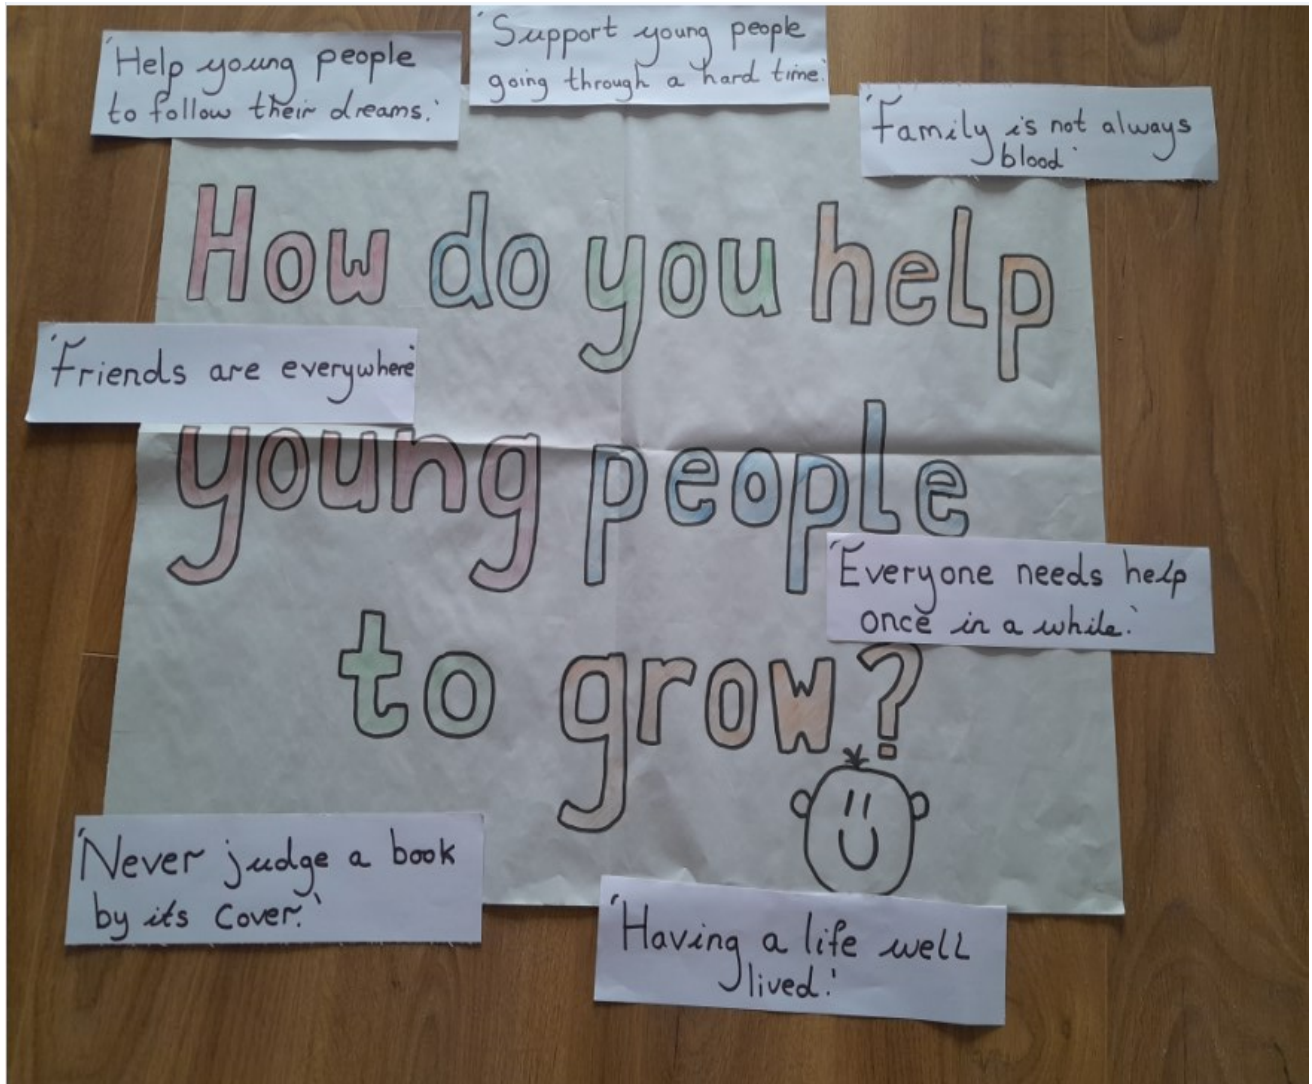 'Help young people
to follow their dreams.'
'Support young people
going through a hard time.'
'Family is not always
blood'
How do you help
'Friends are everywhere'
young people
'Everyone needs help
once in a while.'
to grow?
'Never judge a book
by its cover.'
'Having a life well
lived.'